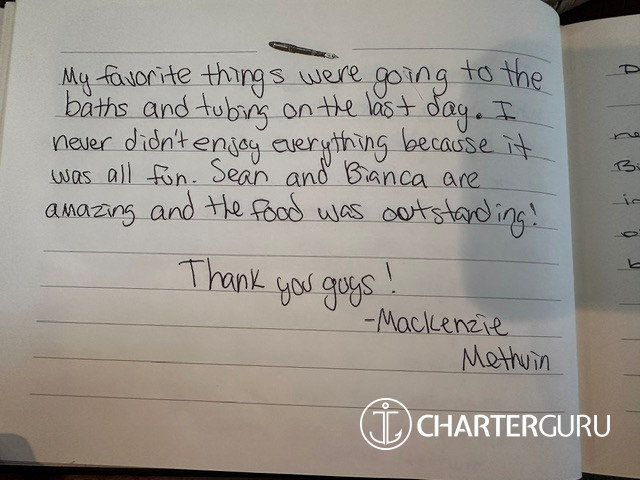 My favorite things were going to the
baths and tubing on the last day. I
never didn't enjoy everything because it
was all fun. Sean and Bianca are
amazing and the food was outstanding!
Thank you guys!
-Mackenzie
Methvin
CHARTERGURU